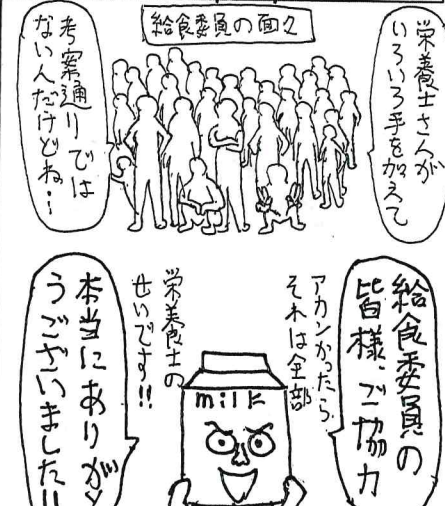 給食委員の面々
栄養士さんが
いろいろ手を加えて
考案通りでは
ないんだけどね…
給食委員の
皆様、ご協力
アカンかったら、
それは全部
栄養士の
せいです!!
milk
本当にありがと
うございました!!